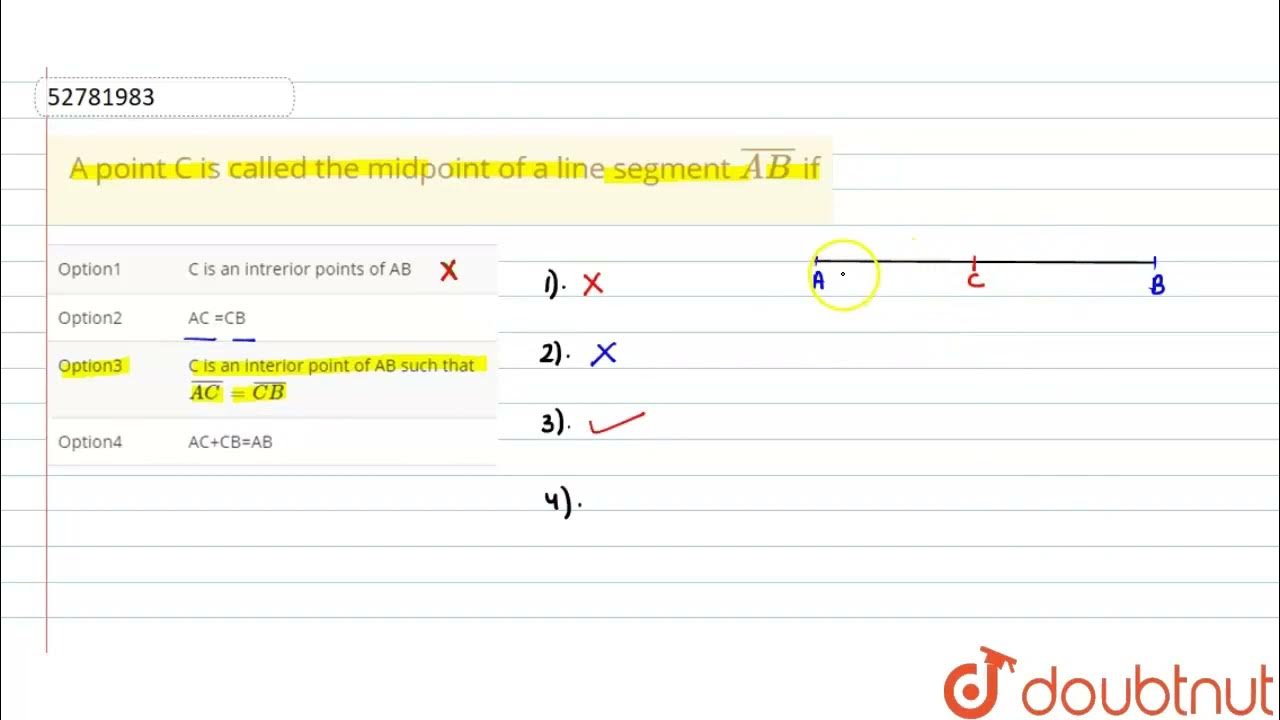 52781983
A point C is called the midpoint of a line segment \overline{AB} if
Option1 C is an intrerior points of AB X
Option2 AC =CB
Option3 C is an interior point of AB such that
\overline{AC} = \overline{CB}
Option4 AC+CB=AB
1). X
2). X
3). ✓
4).
A C B
doubtnut